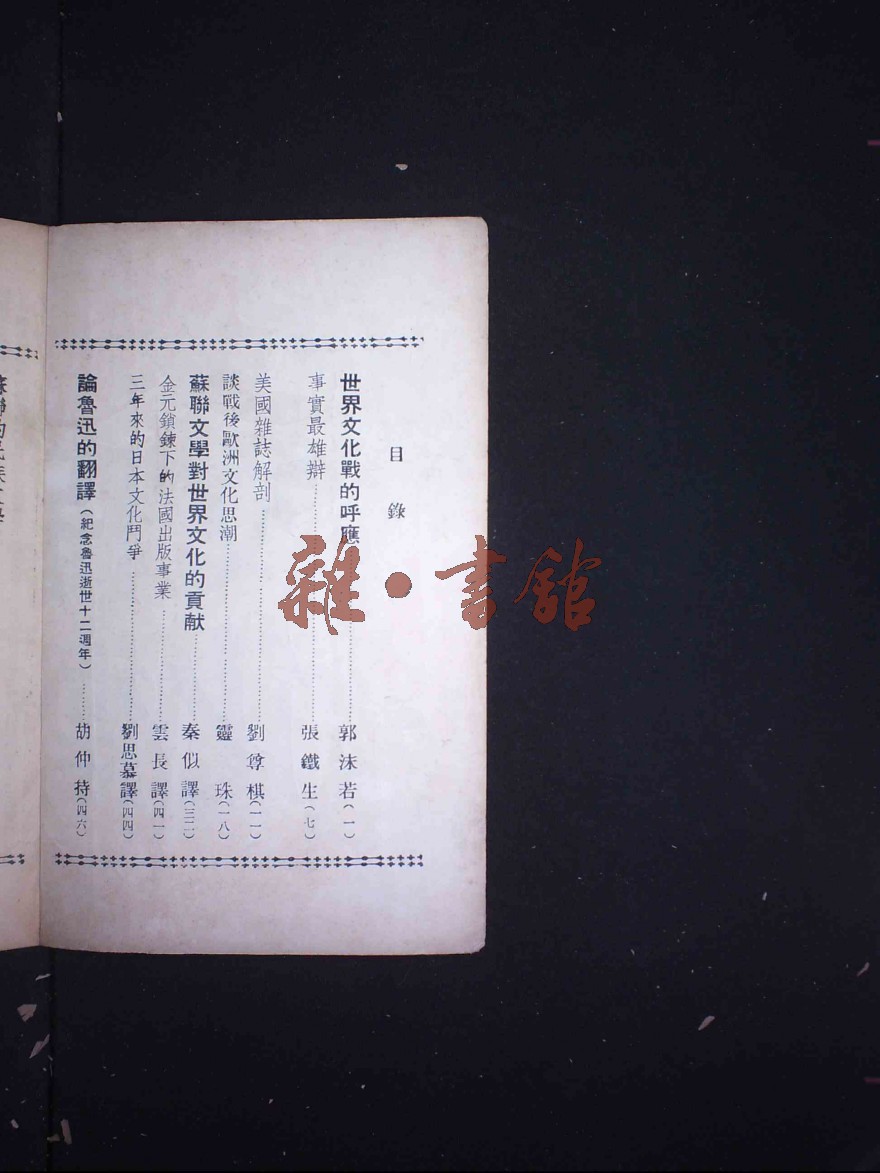 目錄
世界文化戰的呼應⋯⋯郭沫若(一)
事實最雄辯⋯⋯張鐵生(七)
美國雜誌解剖⋯⋯劉尊棋(一一)
談戰後歐洲文化思潮⋯⋯靈珠(一八)
蘇聯文學對世界文化的貢献⋯⋯秦似譯(三二)
金元鎖鍊下的法國出版事業⋯⋯雲長譯(四一)
三年來的日本文化鬥爭⋯⋯劉思慕譯(四四)
論魯迅的翻譯(紀念魯迅逝世十二週年)⋯⋯胡仲持(四六)
雜·書館